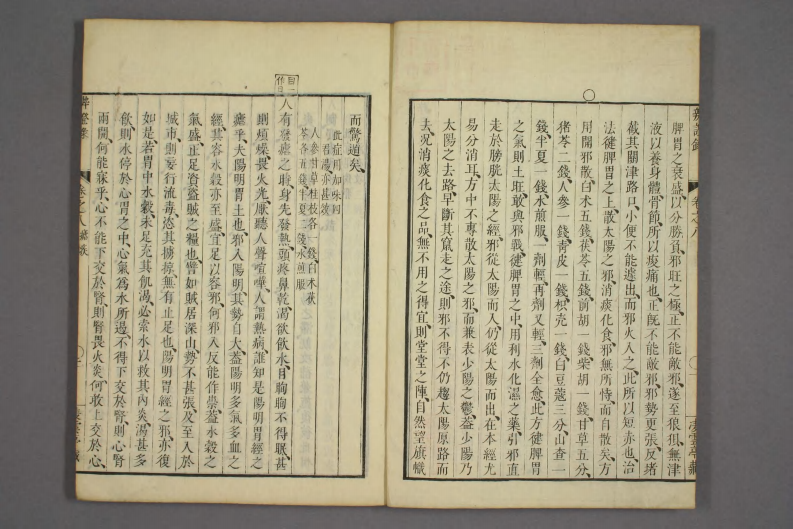 脾胃之衰盛以分勝負邪旺之極正不能敵邪遂至狼狽無津
液以養身體骨節所以痠痛也正旣不能敵邪邪勢更張反堵
截其關津路口小便不能遽出而邪火入之此所以短赤也治
法健脾胃之土散太陽之邪消痰化食邪無所恃而自散矣方
用開邪散白术五錢茯苓五錢前胡一錢柴胡一錢甘草五分
猪苓二錢人參一錢青皮一錢枳殼一錢白豆蔻三分山查一
錢半夏一錢水煎服一劑輕再劑又輕三劑全愈此方健脾胃
之氣則土旺敢與邪戰健脾胃之中用利水化濕之藥引邪直
走於膀胱太陽之經邪從太陽而入仍從太陽而出在本經尤
易分消耳方中不專散太陽之邪而兼表少陽之鬱蓋少陽乃
太陽之去路早斷其竄走之途則邪不得不仍趨原路而
去况消痰化食之品無不用之得宜則堂堂之陣自然望旗幟
卷之八
而驚遁矣
此症用加味四
君湯亦甚效
人參甘草桂枝各一錢白术茯
苓各五錢半夏二錢水煎服
人有發瘧之時身先發熱頭疼鼻乾渴欲飲水目眴眴不得眠甚
則煩燥畏火光厭聽人聲喧嘩人謂熱病誰知是陽明胃經之
瘧乎夫陽明胃土也邪入陽明其勢自大蓋陽明多氣多血之
經其容水穀亦至盛宜足以容邪何邪入反能作祟蓋水穀之
氣盛正足資盜賊之糧也譬如賊居深山勢不甚張及至入於
城市則妄行流毒恣其擄掠無有止足也陽明胃經之邪亦復
如是若胃中水穀未足充其飢渴必索水以救其內炎渴甚多
飲則水停於心胃之中心氣爲水所遏不得下交於腎則心腎
兩開何能寐乎心不能下交於腎則腎畏火炎何敢上交於心
卷之八 瘧疾